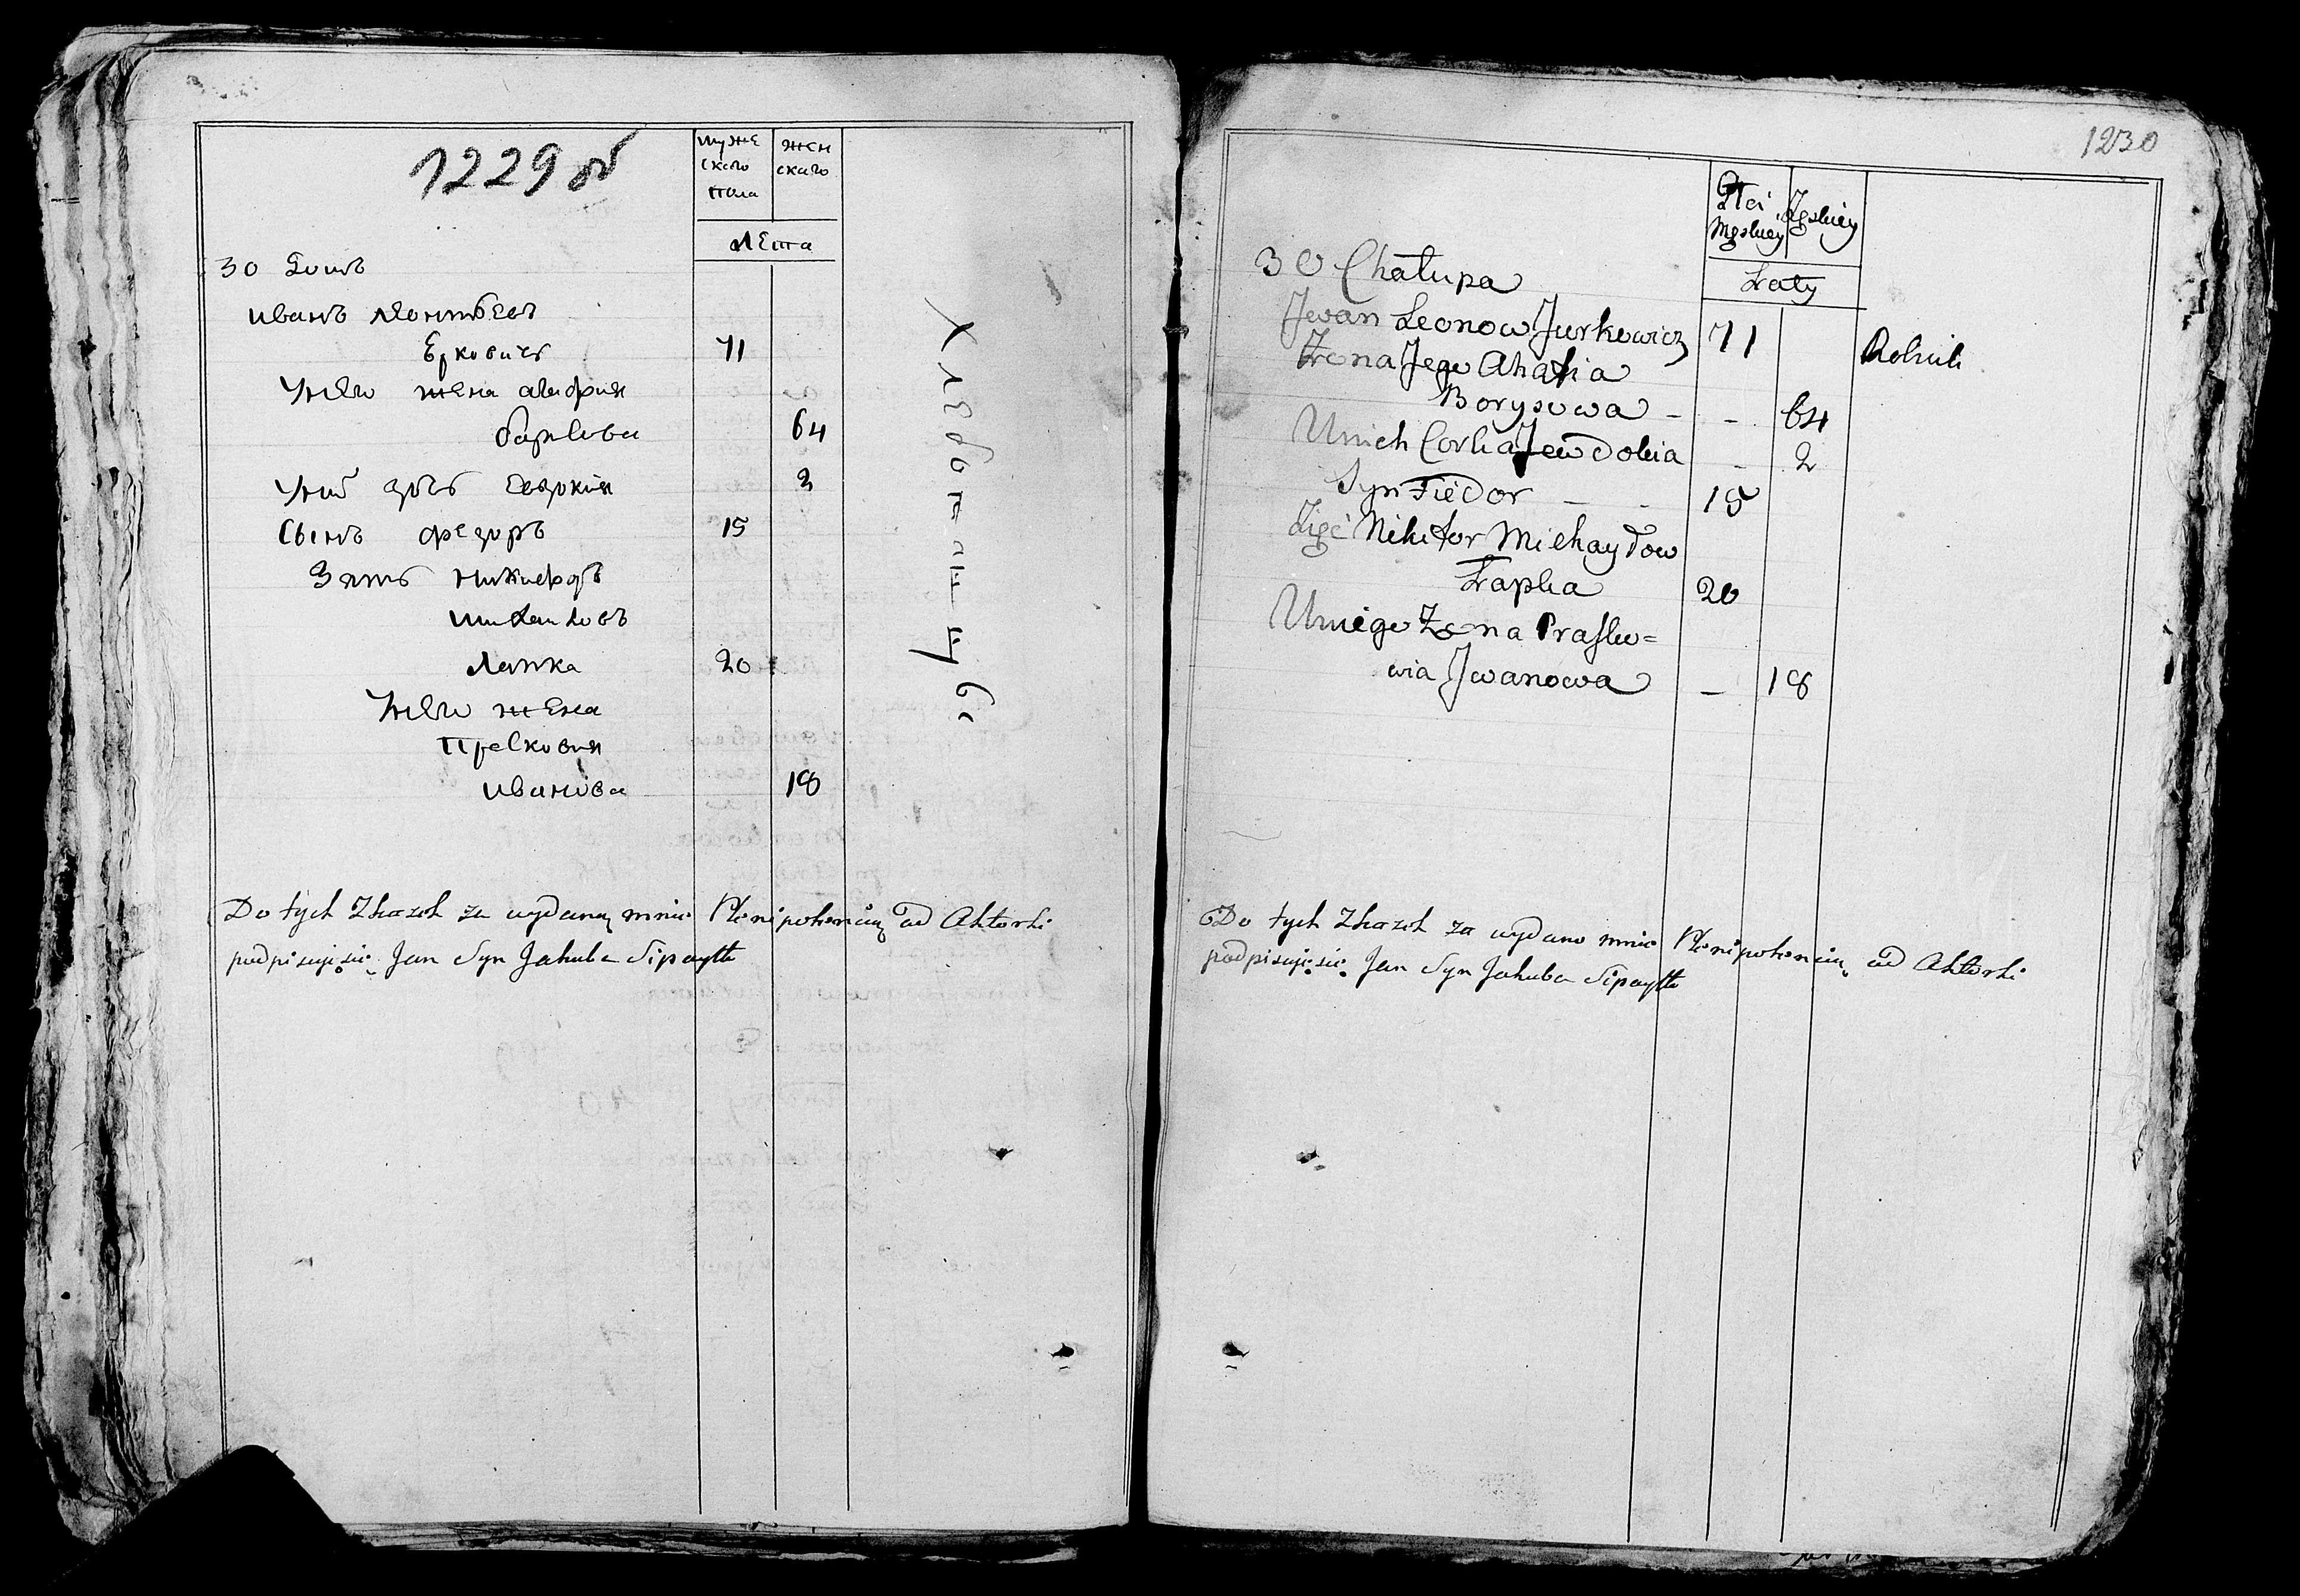 1229 об
муже
ского
пола
жен
ского
лета
30 Домъ
иванъ леонтьев
Еркович 71
У него жена агафия
барисова 64
У них доч Евдокия 2
Сынъ федоръ 15
Зять никифоръ
михаиловъ
Лапка 20
У него жена
Прасковия
иванова 18
Хлебопашцы
Do tych Skazek za wydaną mnie Plenipotencią od Aktorki
podpisuję się Jan Syn Jakuba Sipayłło
1230
Płci
Męskiey
Żęskiey
Laty
30 Chałupa
Jwan Leonow Jurkewicz 71 Rolnik
Żona Jego Ahafia
Borysowa - - 64
U nich Corka Jewdokia - 2
Syn Fiedor - - 15
Zięć Nikifor Michayłow
Łapka 20
U niego Żona Prasko=
wia Jwanowa - 18
Do tych Skazek za wydano mnie Plenipotencią od Aktorki
podpisuję się Jan Syn Jakuba Sipayłło